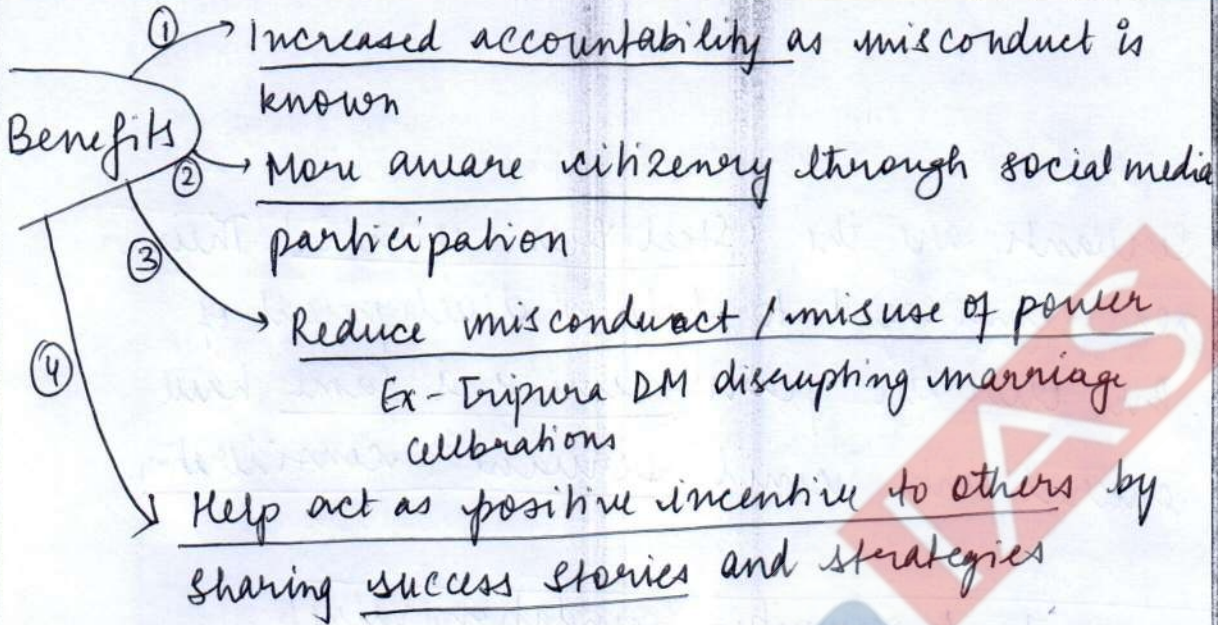 ① Increased accountability as misconduct is
known
Benefits
② More aware citizenry through social media
participation
③ Reduce misconduct / misuse of power
Ex - Tripura DM disrupting marriage
cellbrations
④ Help act as positive incentive to others by
sharing success stories and strategies
IAS